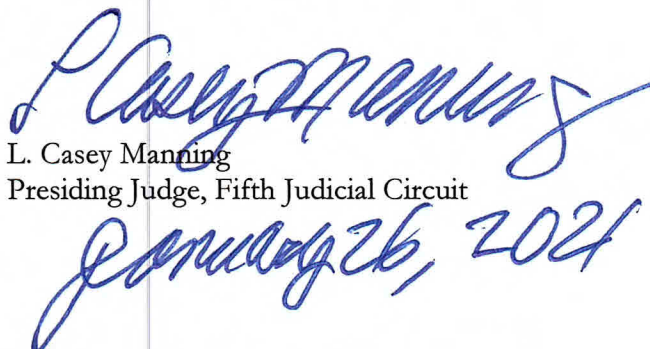 L Casey Manning
L. Casey Manning
Presiding Judge, Fifth Judicial Circuit
January 26, 2021